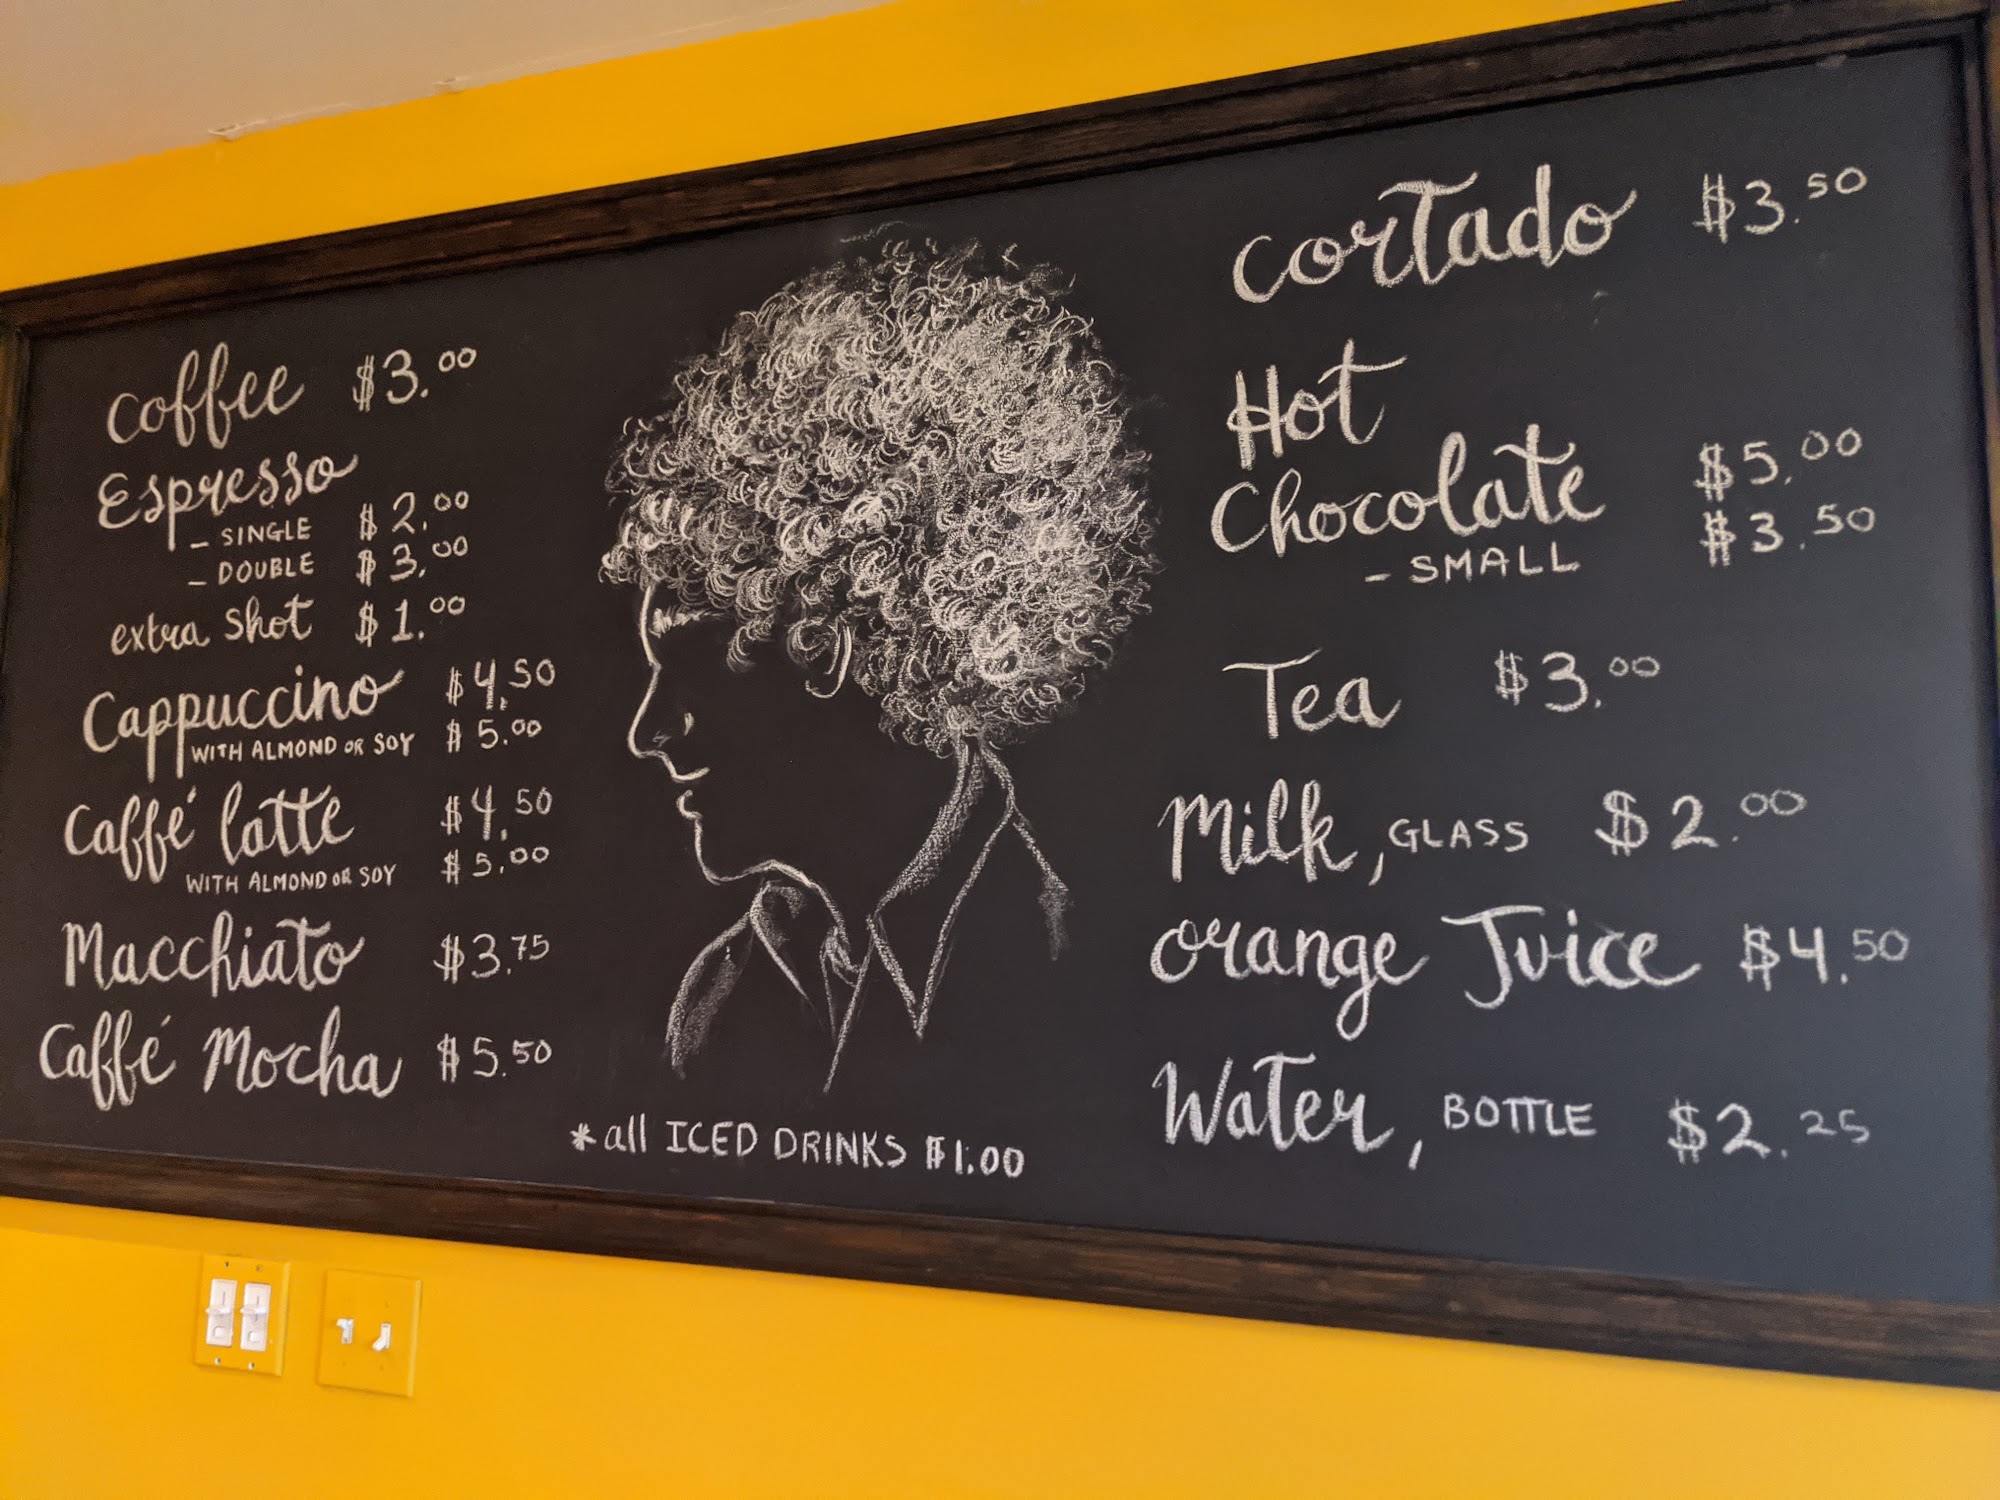 Coffee $3.00
Espresso
- SINGLE $2.00
- DOUBLE $3.00
extra shot $1.00
Cappuccino $4.50
WITH ALMOND OR SOY $5.00
Caffé latte $4.50
WITH ALMOND OR SOY $5.00
Macchiato $3.75
Caffé Mocha $5.50
*all ICED DRINKS $1.00
Cortado $3.50
Hot
Chocolate $5.00
- SMALL $3.50
Tea $3.00
Milk, GLASS $2.00
orange Juice $4.50
Water, BOTTLE $2.25